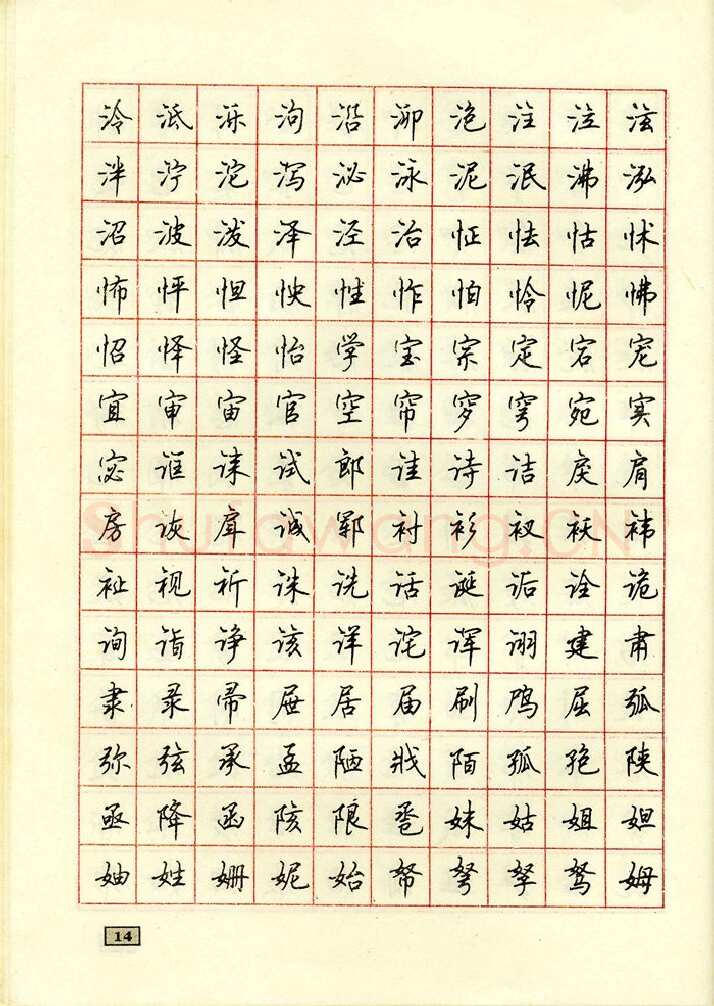 泠泜泺泃沿泖泡注泣泫
泮泞沱泻泌泳泥泯沸泓
沼波泼泽泾治怔怯怙怵
怖怦怛怏性怍怕怜怩怫
怊怿怪怡学宝宗定宕宠
宜审宙官空帘穸穹宛实
宓诓诔试郎诖诗诘戾肩
房诙戽诚郓衬衫衩祆祎
祉视祈诛诜话诞诟诠诡
询诣诤该详诧诨诩建肃
隶录帚屉居届刷鸤屈弧
弥弦承孟陋戕陌孤孢陕
亟降函陔限卺妹姑姐妲
妯姓姗妮始帑弩孥驽姆
14
Shufawang.CN